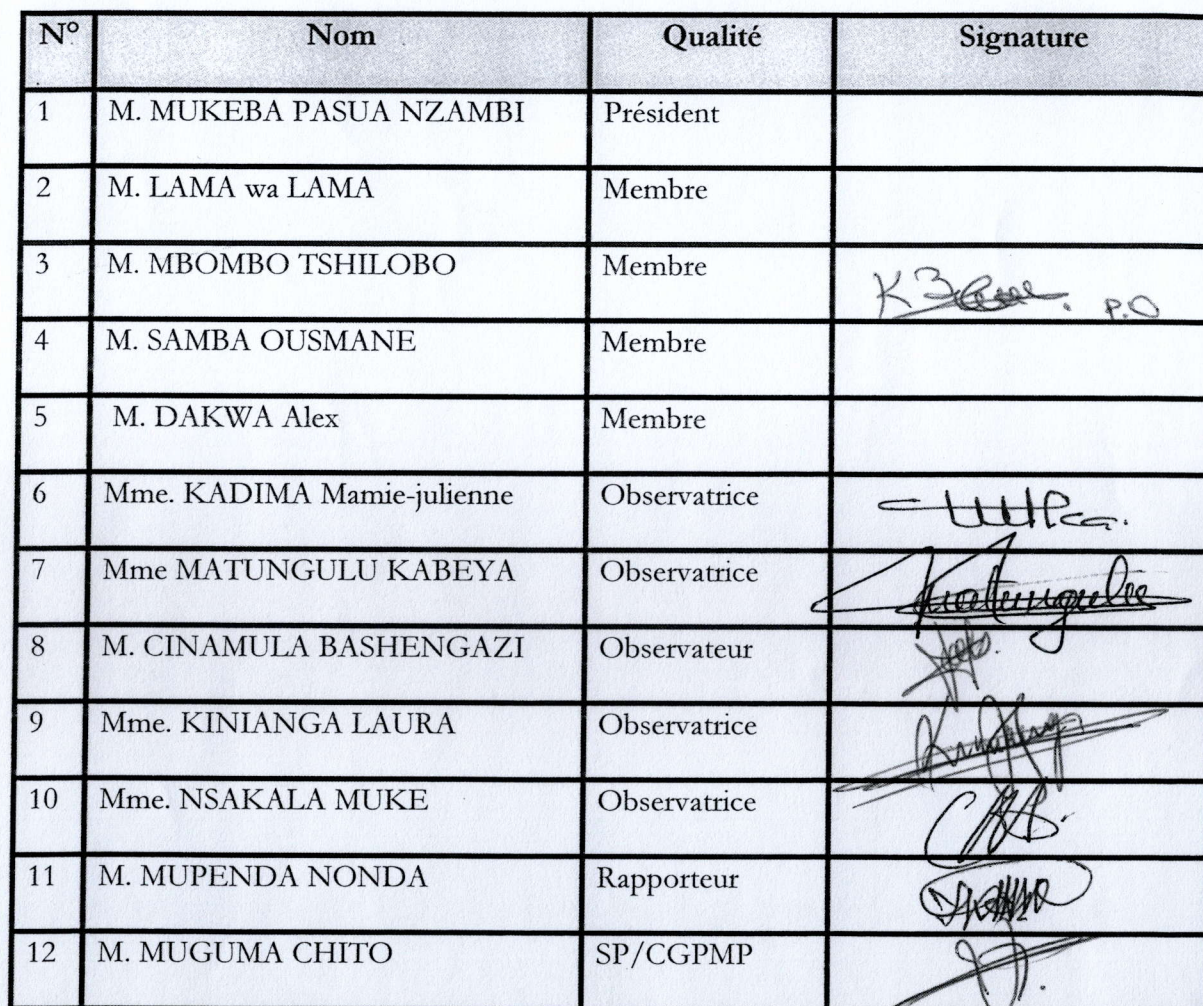 N° Nom Qualité Signature
1 M. MUKEBA PASUA NZAMBI Président
2 M. LAMA wa LAMA Membre
3 M. MBOMBO TSHILOBO Membre P.O
4 M. SAMBA OUSMANE Membre
5 M. DAKWA Alex Membre
6 Mme. KADIMA Mamie-julienne Observatrice
7 Mme MATUNGULU KABEYA Observatrice Matungulu
8 M. CINAMULA BASHENGAZI Observateur
9 Mme. KINIANGA LAURA Observatrice
10 Mme. NSAKALA MUKE Observatrice
11 M. MUPENDA NONDA Rapporteur
12 M. MUGUMA CHITO SP/CGPMP